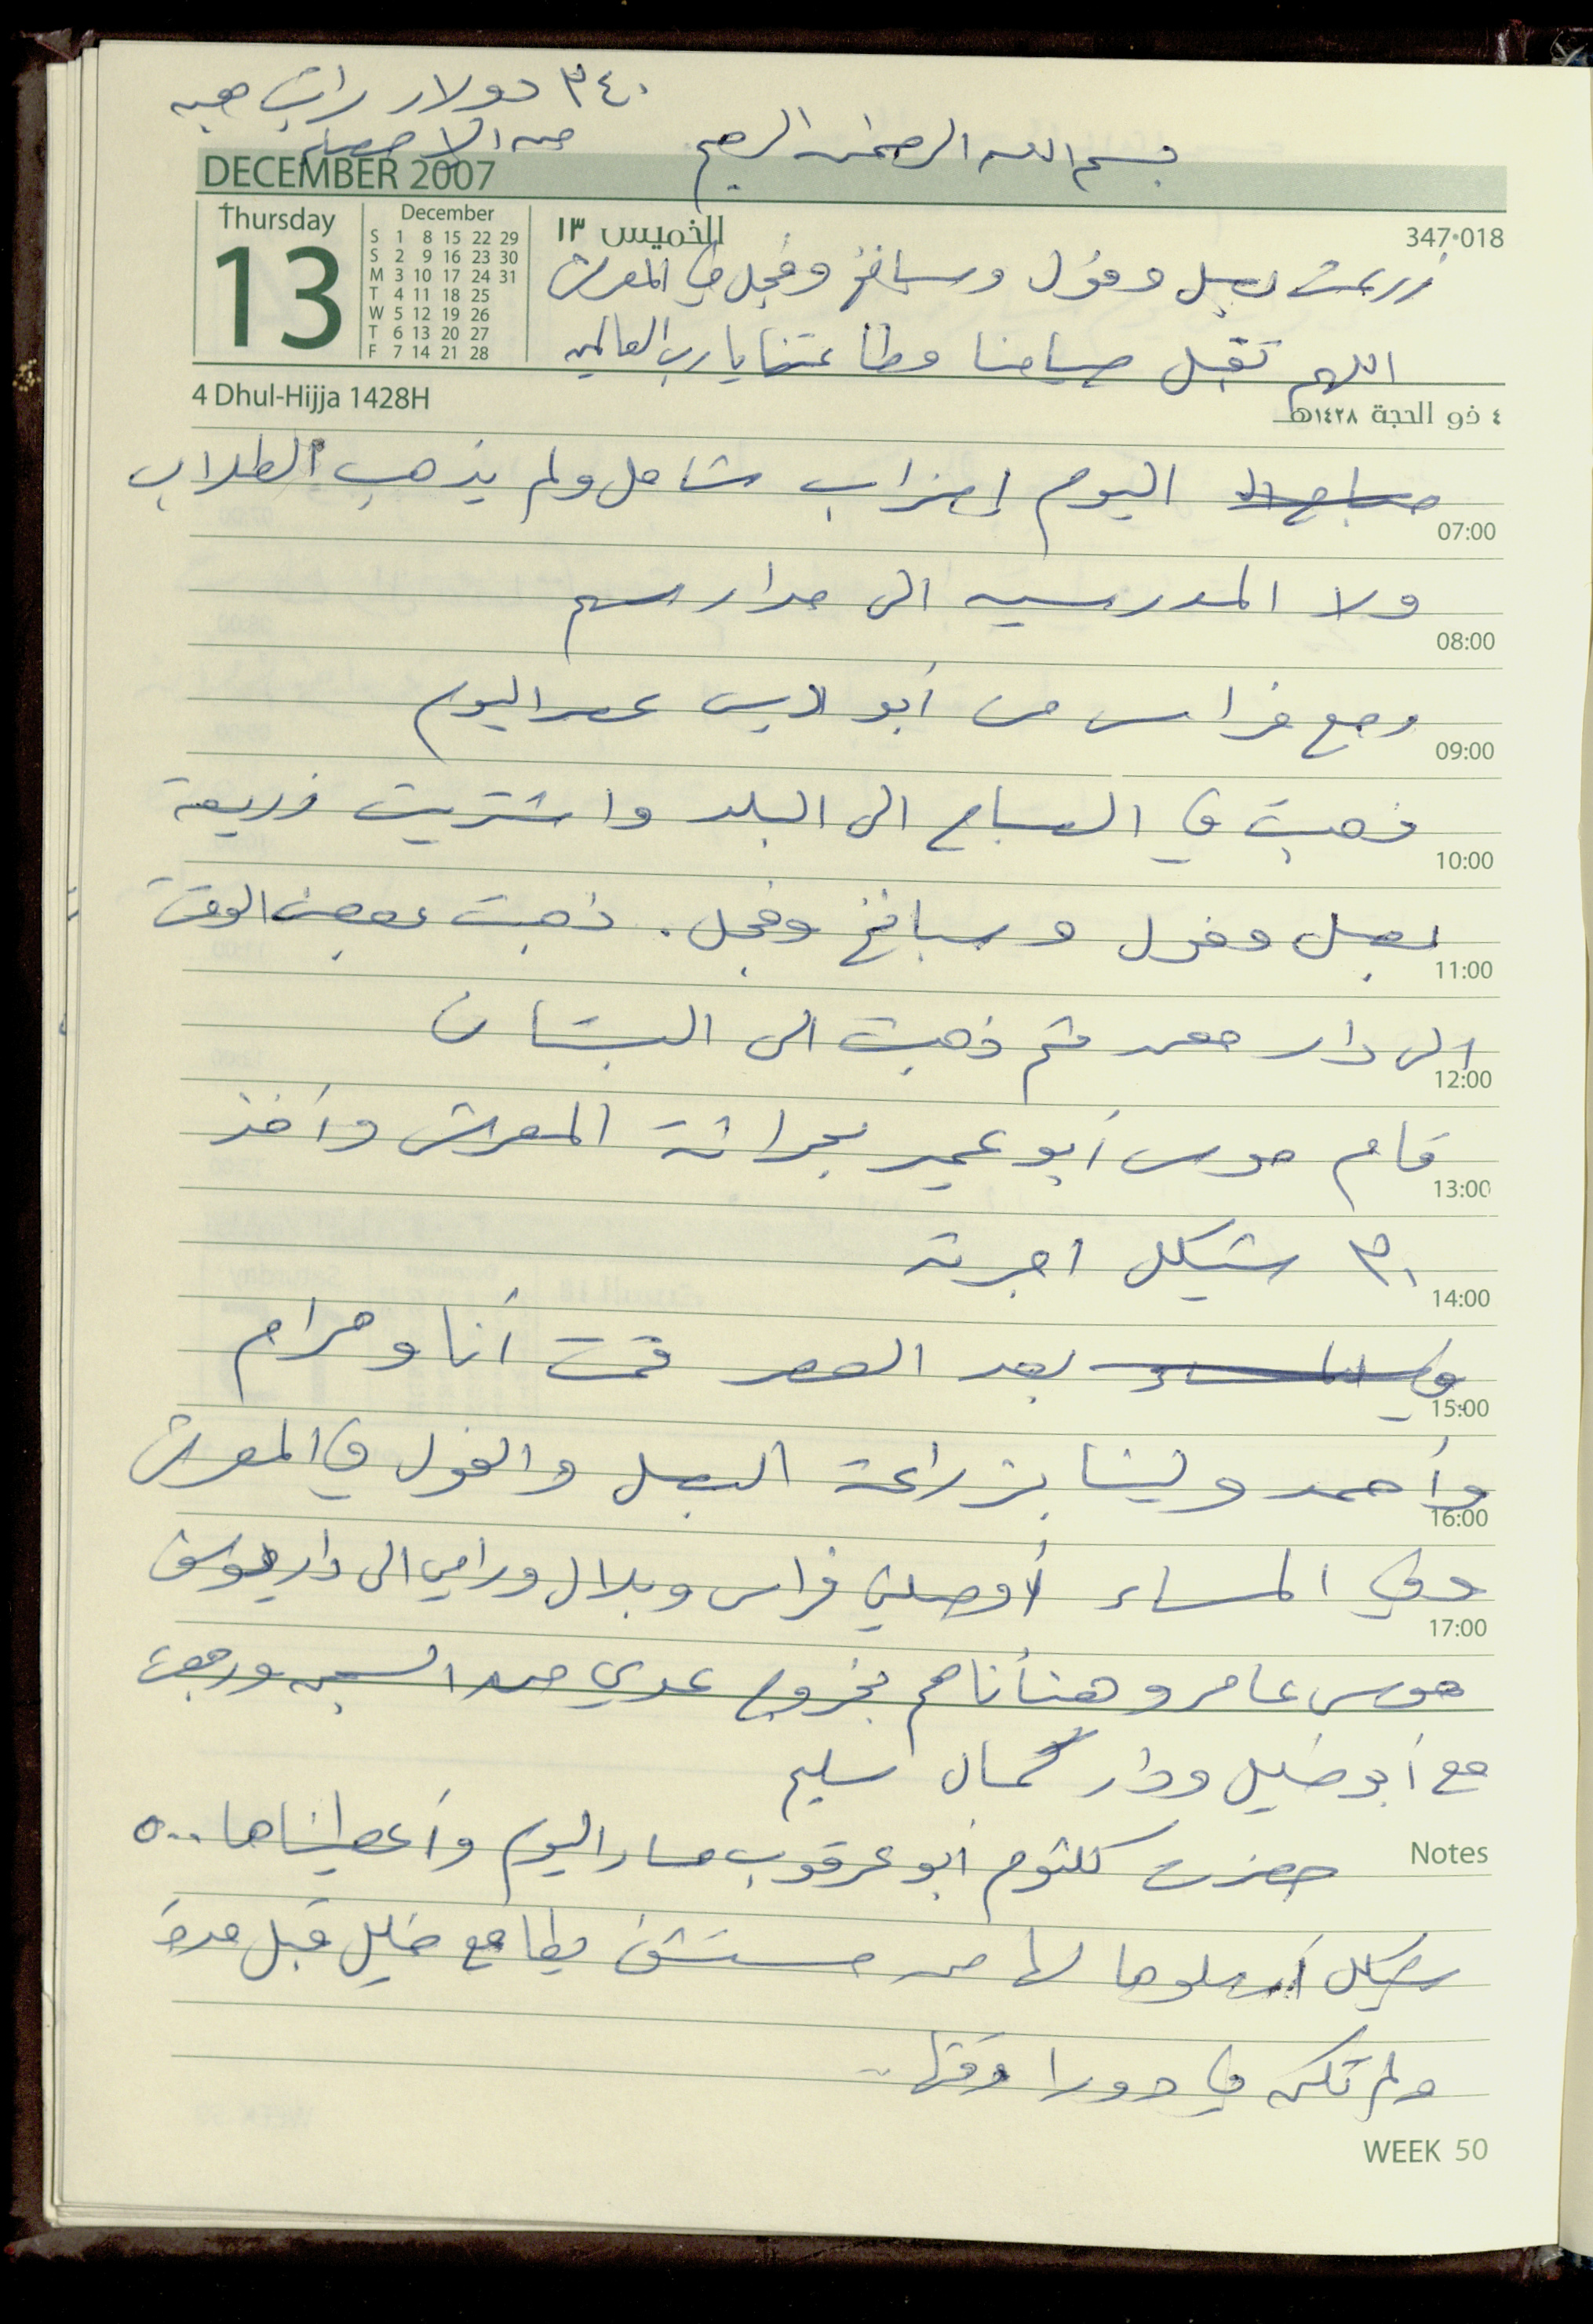 ٣٤٠ دولار راتب هبه
من الإ
بسم الله الرحمن الرحيم
DECEMBER 2007
Thursday
13
December
S 1 8 15 22 29
S 2 9 16 23 30
M 3 10 17 24 31
T 4 11 18 25
W 5 12 19 26
T 6 13 20 27
F 7 14 21 28
الخميس ١٣
347·018
زرعت بصل وفول وسبانخ وفجل في المعرش
اللهم تقبل صيامنا وطاعتنا يا رب العالمين
4 Dhul-Hijja 1428H
٤ ذو الحجة ١٤٢٨هـ
اليوم إضراب شامل ولم يذهب الطلاب
07:00
ولا المدرسين الى مدارسهم
08:00
رجع فراس من أبو ديس عصر اليوم
09:00
ذهبت في الصباح الى البلد واشتريت زريعة
10:00
بصل وفول وسبانخ وفجل . ذهبت بعض الوقت
11:00
الى دار محمد ثم ذهبت الى البستان
12:00
قام موسى أبو عمير بحراثة المعرش وأخذ
13:00
٣٠ شيكل اجرته
14:00
وفي المساء بعد العصر قمت أنا ومرام
15:00
وأحمد ولينا بزراعة البصل والفول في المعرش
16:00
وفي المساء أوصلني فراس وبلال ورامي الى دار موسى
17:00
موسى عامر وهنأناهم بخروج عدي من السجن ورجعت
مع أبو خليل ودار كمال اسليم
Notes
حضرت كلثوم ابو عرقوب مساء اليوم وأعطيناها ٥٠٠
شيكل أرسلوها لها من مستشفى يطا مع خليل قبل مدة
ولم تكن في دورا وقتها
WEEK 50